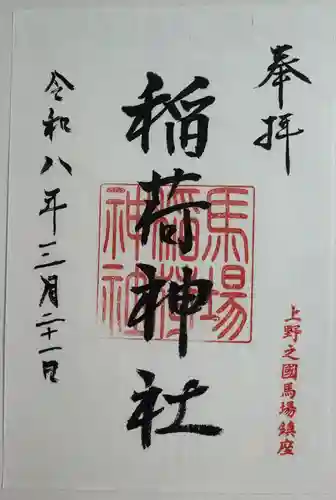 奉拝
上野之國馬場鎮座
稲荷神社
馬場
稲荷
神社
令和八年三月二十一日